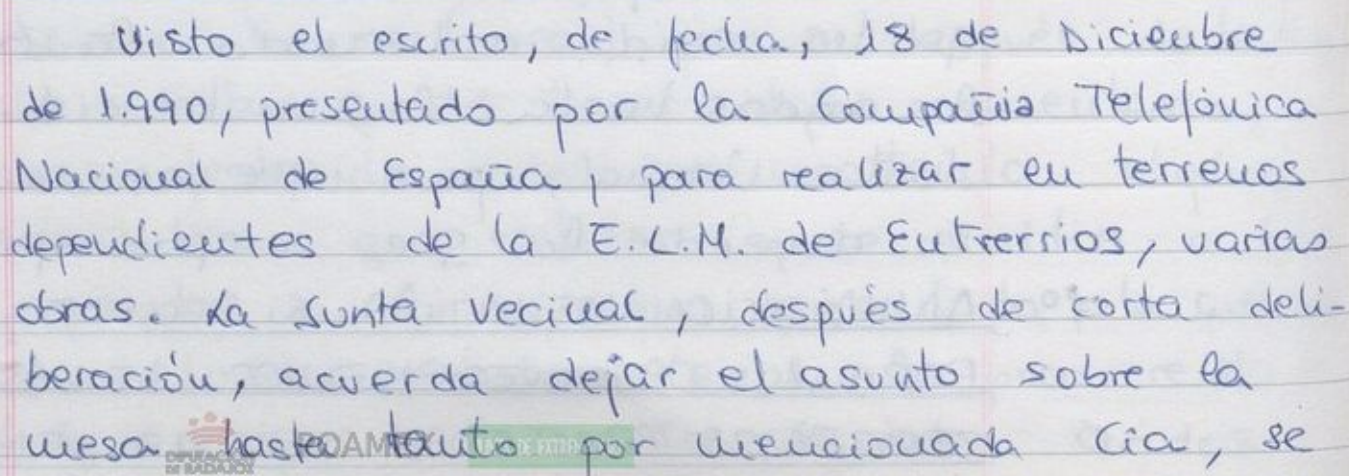 Visto el escrito, de fecha, 18 de Diciembre
de 1.990, presentado por la Compañia Telefónica
Nacional de España, para realizar en terrenos
dependientes de la E.L.M. de Entrerrios, varias
obras. La Junta Vecinal, después de corta deli-
beración, acuerda dejar el asunto sobre la
mesa hasta tanto por mencionada Cia, se
DIPUTACIÓN
DE BADAJOZ